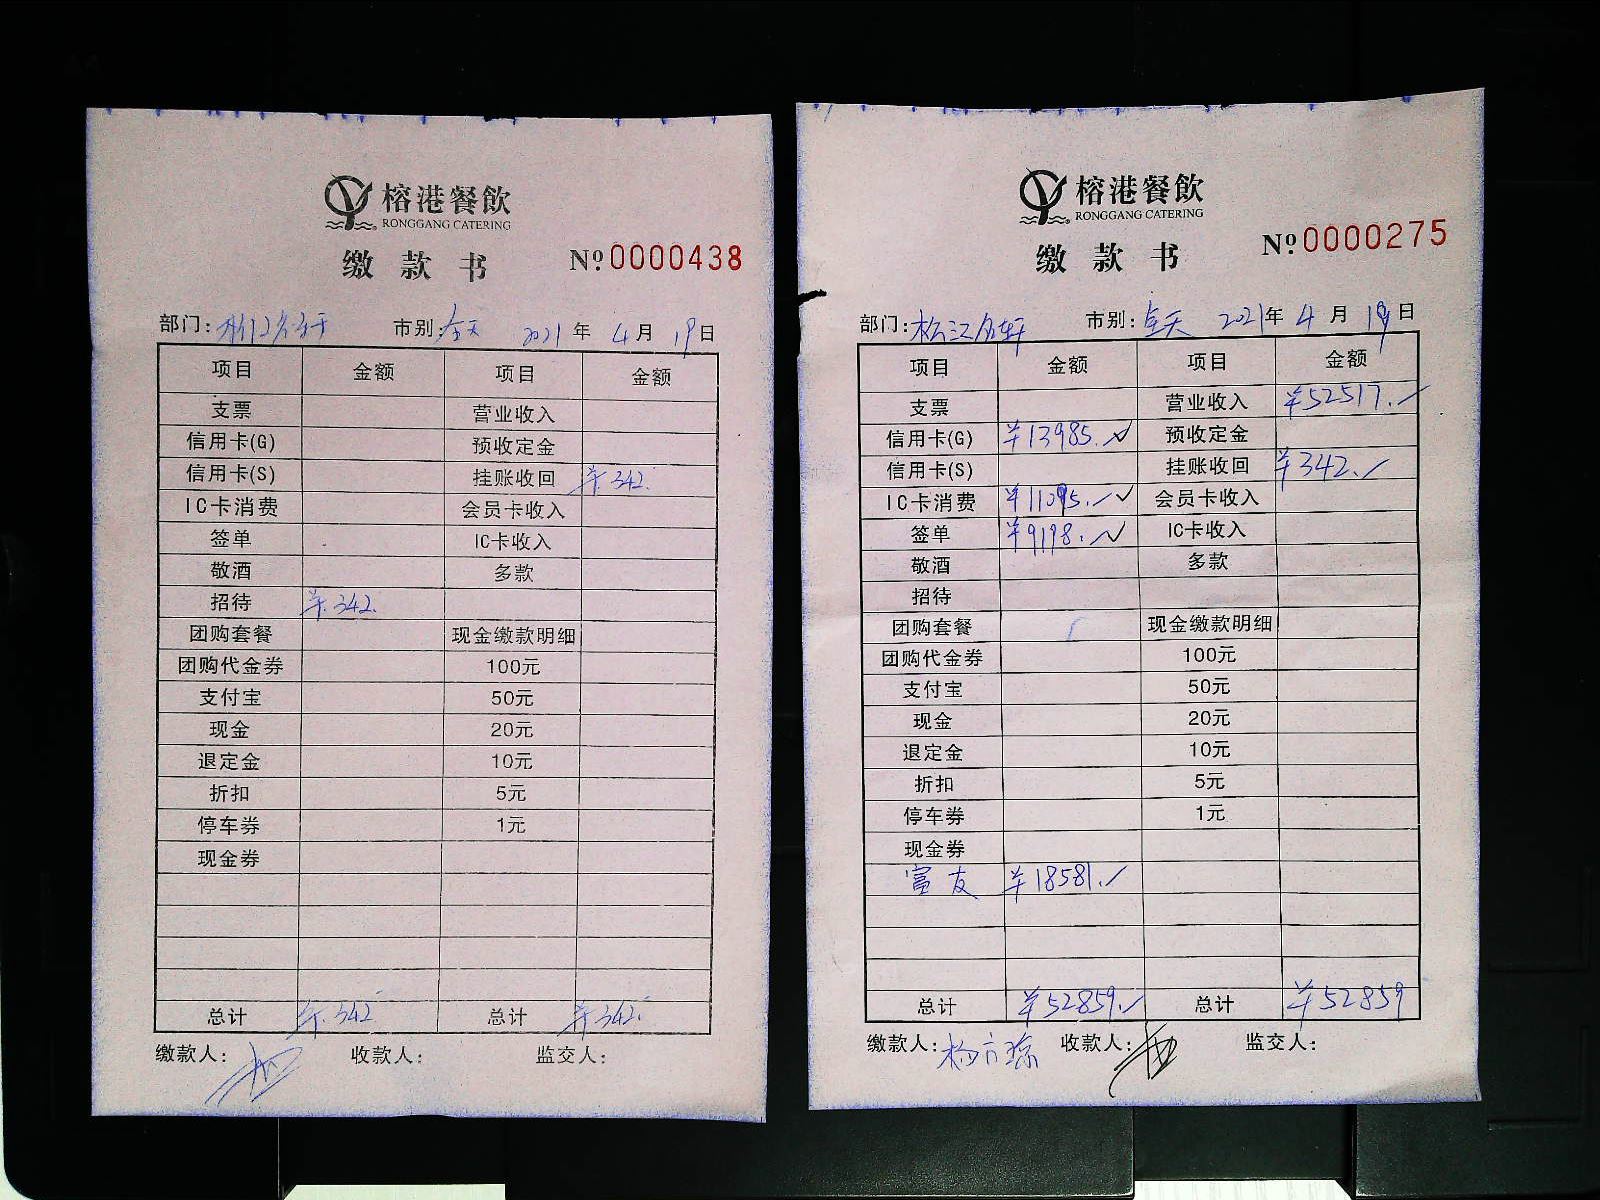 榕港餐飲
RONGGANG CATERING
缴款书 №0000438
部门: 市别:全天 2021年4月19日
项目 金额 项目 金额
支票 营业收入
信用卡(G) 预收定金
信用卡(S) 挂账收回 ¥342.
IC卡消费 会员卡收入
签单 IC卡收入
敬酒 多款
招待 ¥342.
团购套餐 现金缴款明细
团购代金券 100元
支付宝 50元
现金 20元
退定金 10元
折扣 5元
停车券 1元
现金券
总计 ¥342 总计 ¥342.
缴款人: 收款人: 监交人:
榕港餐飲
RONGGANG CATERING
缴款书 №0000275
部门:松江名轩 市别:全天 2021年4月19日
项目 金额 项目 金额
支票 营业收入 ¥52517.
信用卡(G) ¥13985. 预收定金
信用卡(S) 挂账收回 ¥342.
IC卡消费 ¥11095. 会员卡收入
签单 ¥9198. IC卡收入
敬酒 多款
招待
团购套餐 现金缴款明细
团购代金券 100元
支付宝 50元
现金 20元
退定金 10元
折扣 5元
停车券 1元
现金券
富友 ¥18581.
总计 ¥52859. 总计 ¥52859
缴款人: 收款人: 监交人: